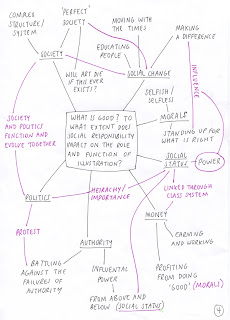 COMPLEX
STRUCTURE/
SYSTEM
'PERFECT'
SOCIETY
MOVING WITH
THE TIMES
MAKING
A DIFFERENCE
EDUCATING
PEOPLE
SOCIETY
SOCIAL CHANGE
INFLUENCE
WILL ART DIE
IF THIS EVER
EXISTS?
SELFISH/
SELFLESS
MORALS
STANDING UP FOR
WHAT IS RIGHT
WHAT IS GOOD? TO
WHAT EXTENT DOES
SOCIAL RESPONSIBILITY
IMPACT ON THE ROLE
AND FUNCTION OF
ILLUSTRATION?
SOCIETY
AND POLITICS
FUNCTION AND
EVOLVE TOGETHER
SOCIAL
STATUS
POWER
POLITICS
HEIRACHY/
IMPORTANCE
LINKED THROUGH
CLASS SYSTEM
MONEY
PROTEST
AUTHORITY
EARNING
AND WORKING
BATTLING
AGAINST THE
FAILURES OF
AUTHORITY
INFLUENTIAL
POWER
PROFITING
FROM DOING
'GOOD' (MORALS)
FROM ABOVE AND
BELOW (SOCIAL STATUS)
4